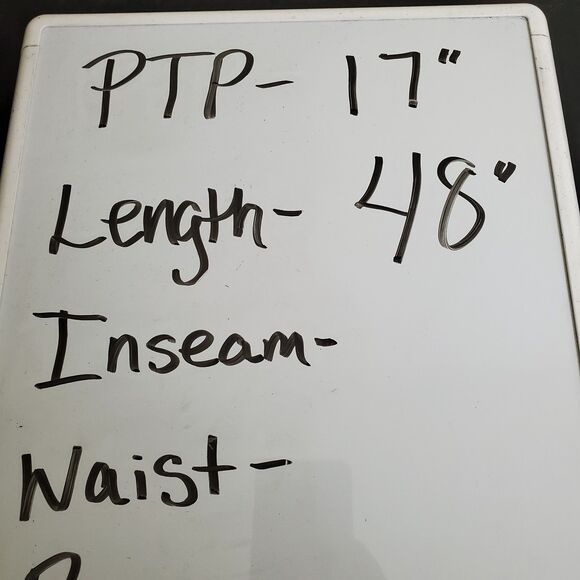 PTP- 17"
Length- 48"
Inseam-
Waist-